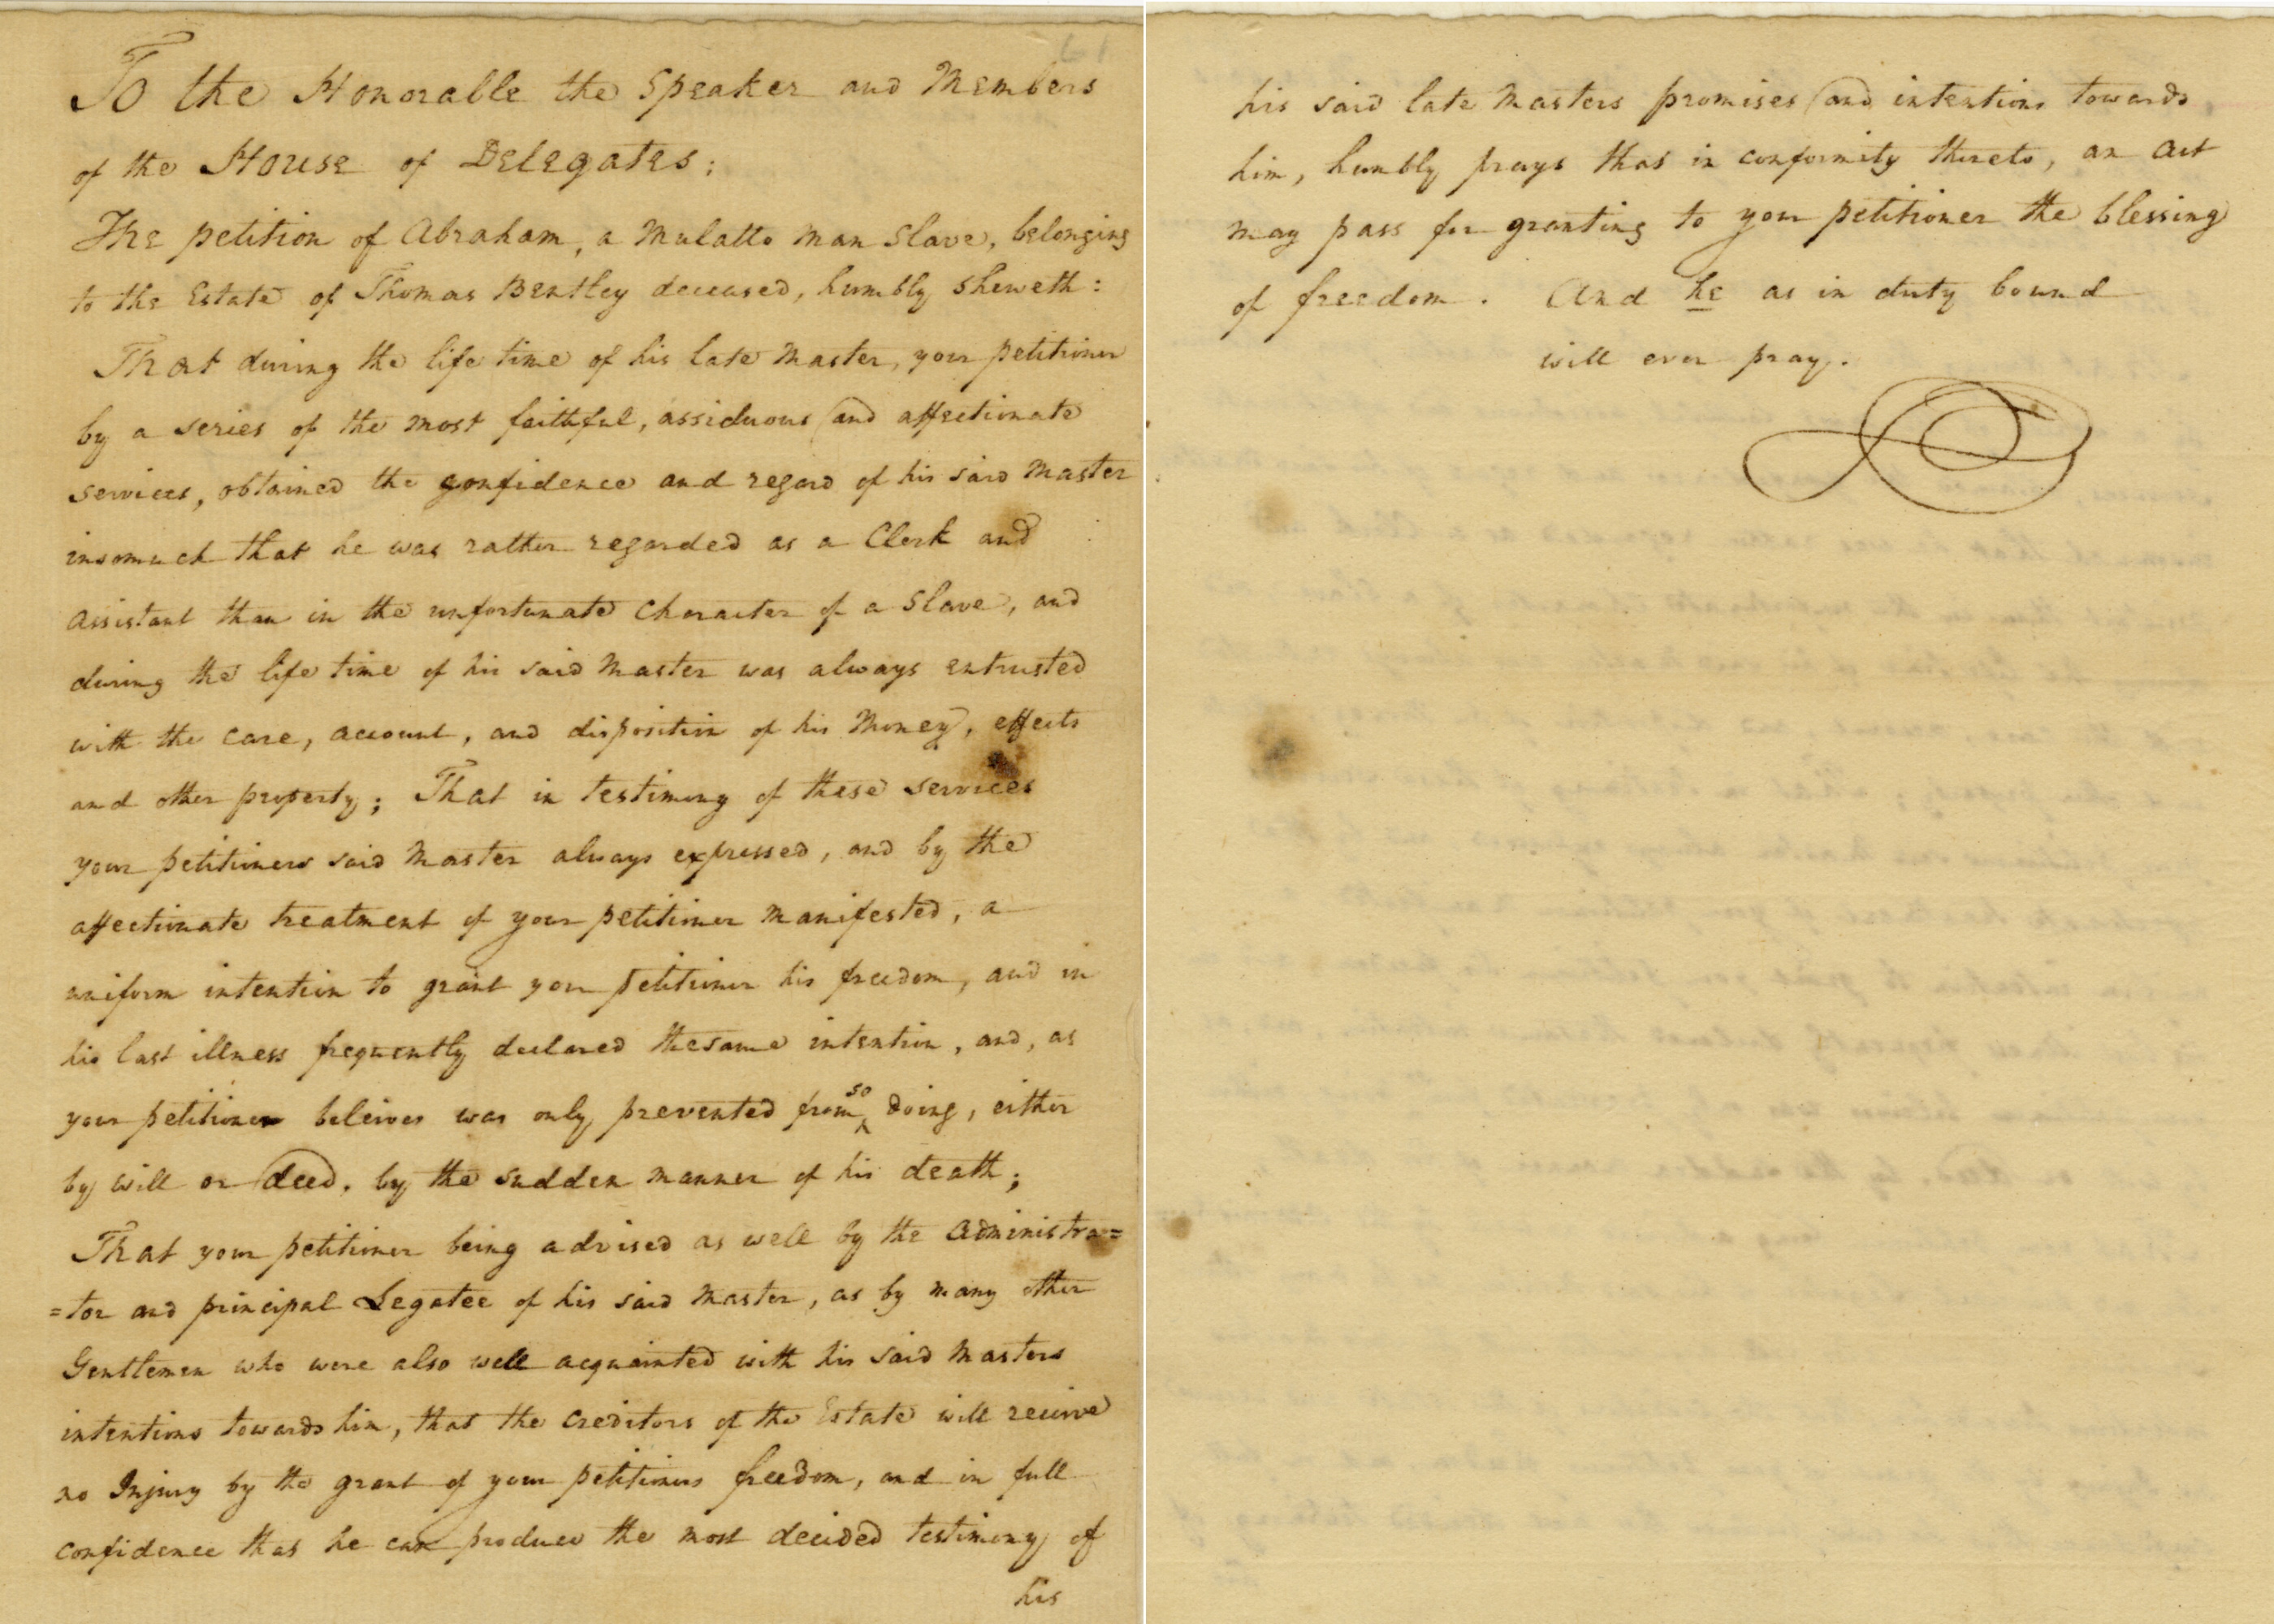 To the Honorable the Speaker and Members
of the House of Delegates;
The petition of Abraham, a Mulatto man Slave, belonging
to the Estate of Thomas Bentley deceased, humbly sheweth:
That during the life time of his late Master, your petitioner
by a series of the most faithful, assiduous and affectionate
services, obtained the confidence and regard of his said Master
insomuch that he was rather regarded as a Clerk and
assistant than in the unfortunate Character of a Slave, and
during the life time of his said Master was always entrusted
with the care, account, and disposition of his Money, effects
and other property; That in testimony of these services
your petitioners said Master always expressed, and by the
affectionate treatment of your petitioner manifested, a
uniform intention to grant your petitioner his freedom, and in
his last illness frequently declared the same intention, and, as
your petitioner beleives was only prevented from so doing, either
by will or deed, by the sudden manner of his death;
That your petitioner being advised as well by the Administra=
=tor and principal Legatee of his said Master, as by many other
Gentlemen who were also well acquainted with his said Masters
intentions towards him, that the Creditors of the Estate will receive
no Injury by the grant of your petitioners freedom, and in full
confidence that he can produce the most decided testimony of
his
his said late Masters promises and intentions towards
him, humbly prays that in conformity thereto, an Act
may pass for granting to your petitioner the blessing
of freedom. And he as in duty bound
will ever pray.